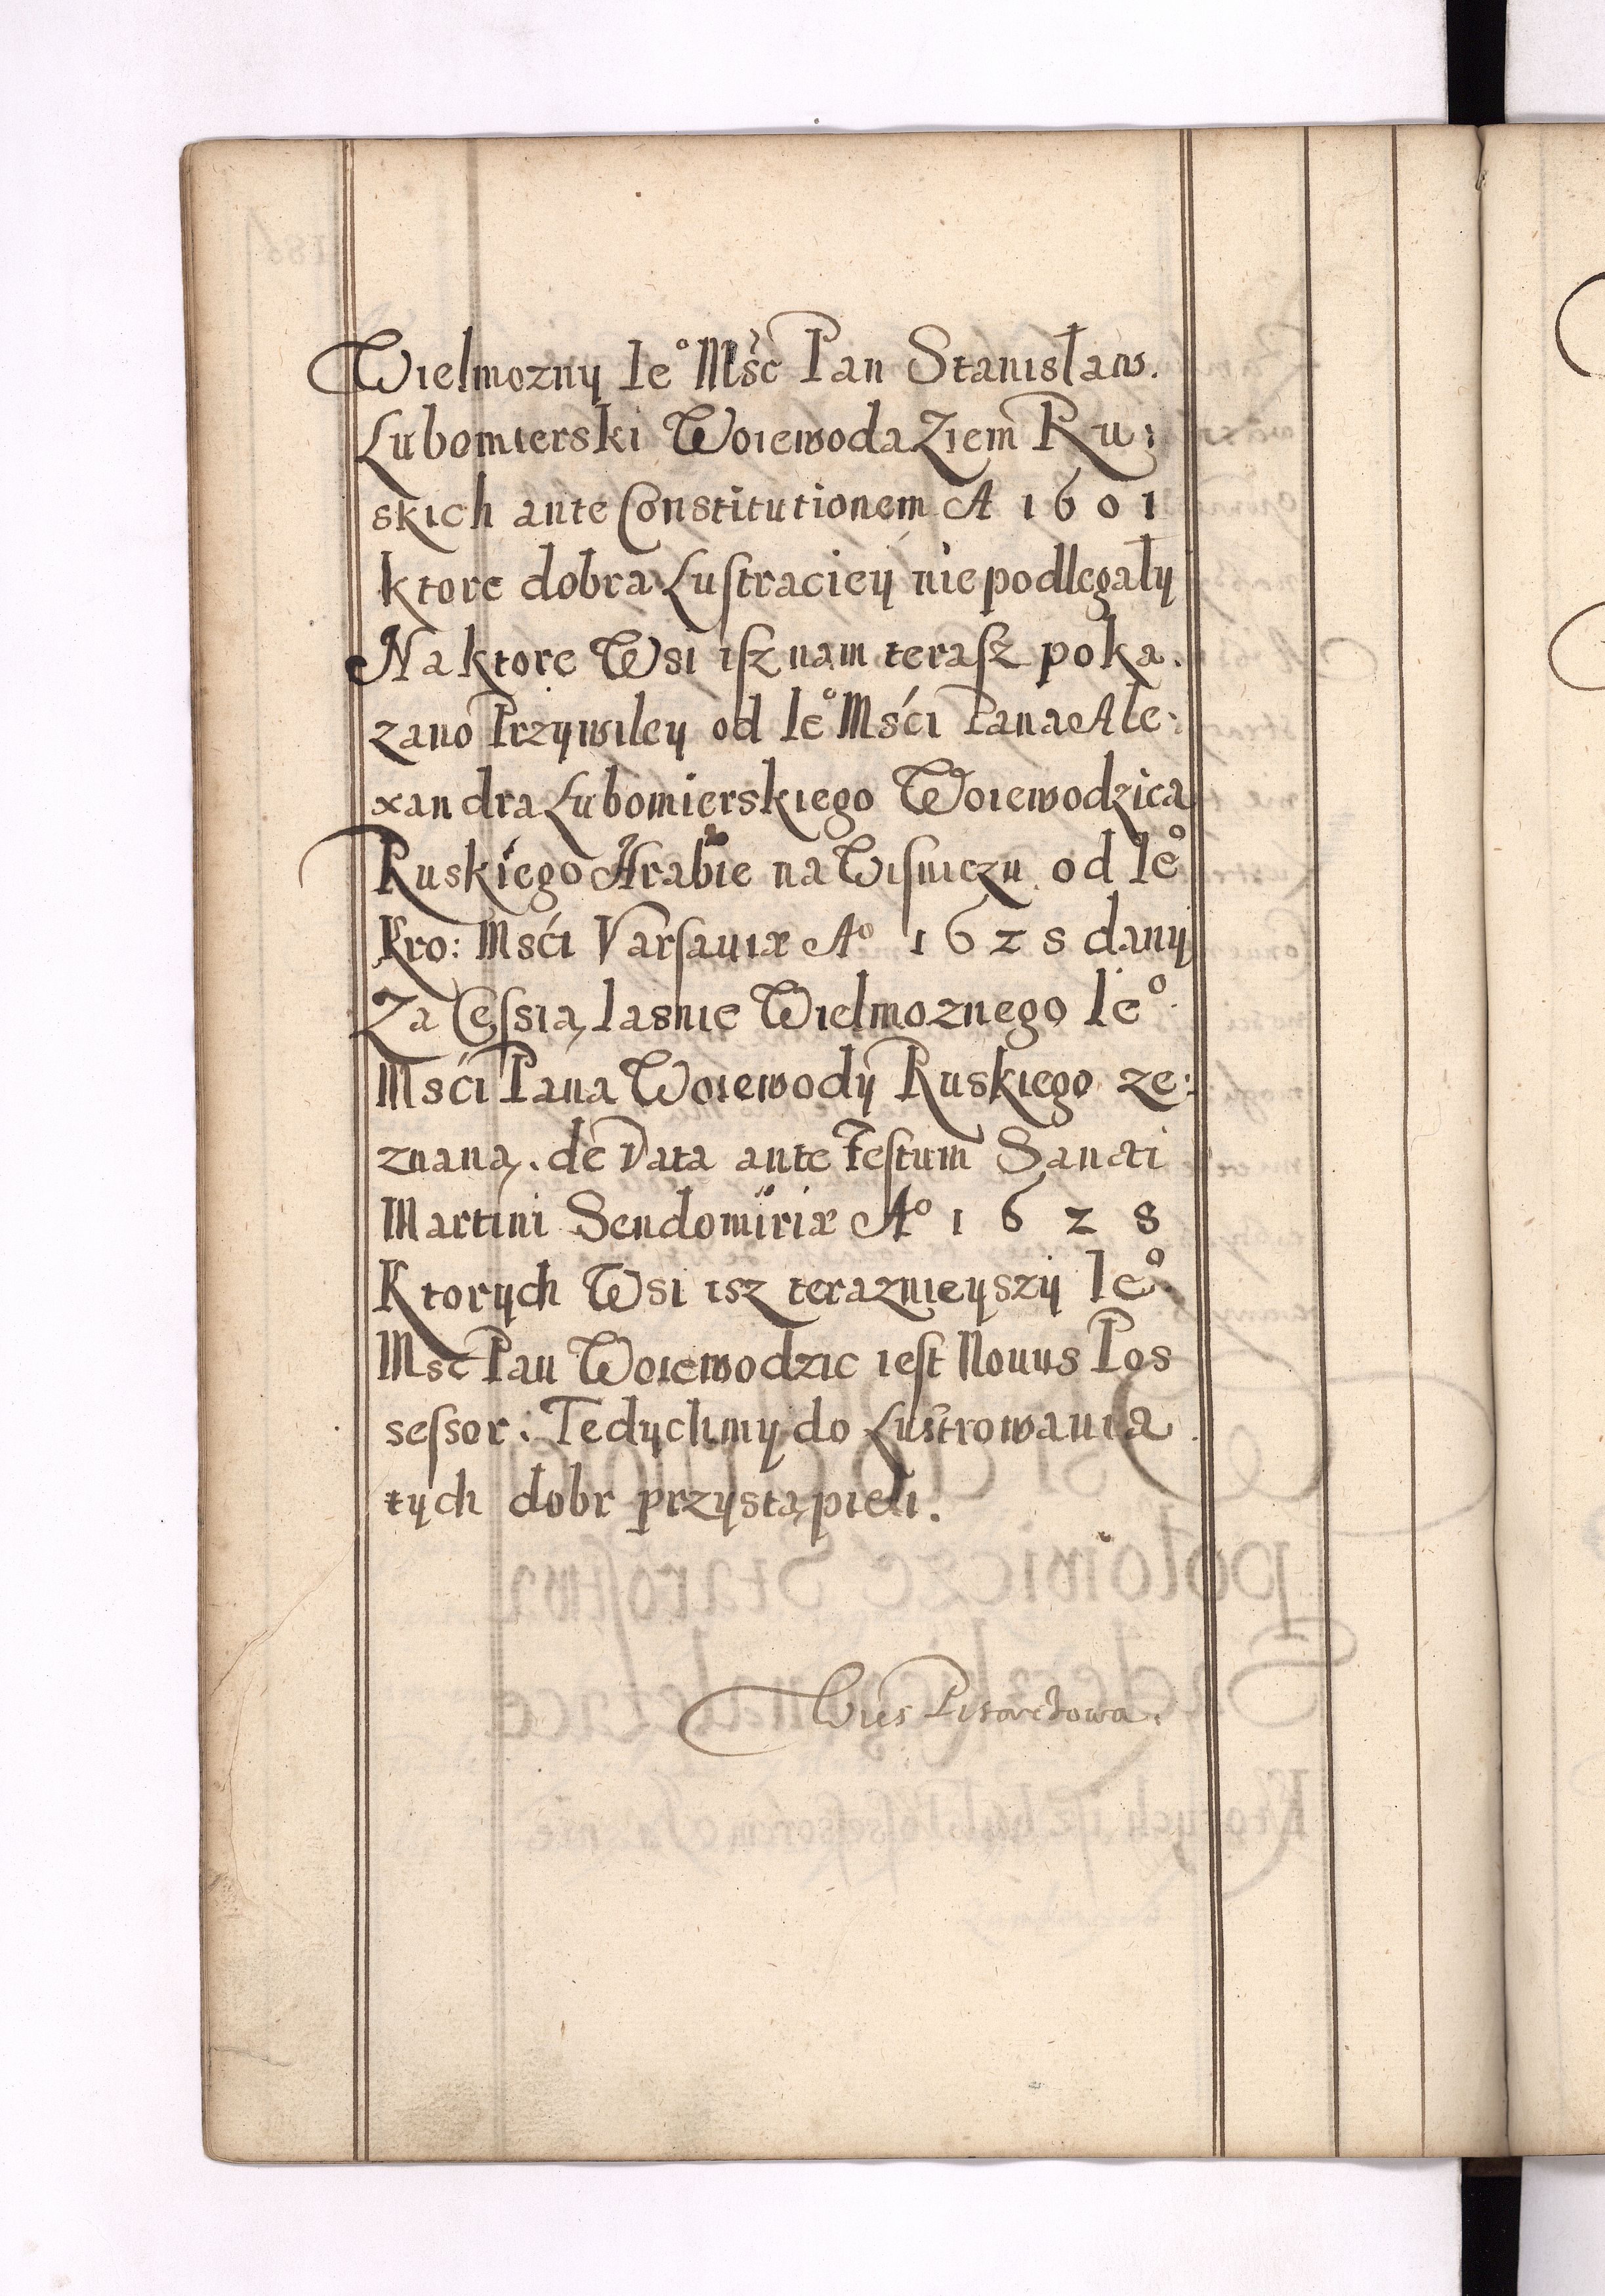 Wielmozny Ie° Mść Pan Stanisław.
Lubomierski Woiewoda Ziem Ru:
skich ante Constitutionem A 1601
ktore dobra Lustraciey nie podlegały
Na ktore Wsi isz nam terasz poka.
zano Przywiley od Ie° Mści Pana Ale:
xandra Lubomierskiego Woiewodzica
Ruskiego Hrabie na Wisniczu od Ie°
Kro: Mści Varsauiæ A° 1628 dany
Za Cessią Iasnie Wielmoznego Ie°
Mści Pana Woiewody Ruskiego ze:
znaną. de Data ante Festum Sancti
Martini Sendomiriæ A° 1628
Ktorych Wsi isz teraznieyszy Ie°
Msc Pan Woiewodzic iest Nouus Pos
sessor. Tedychmy do Lustrowania
tych dobr przystąpieli.
Wies Pisarzowa.